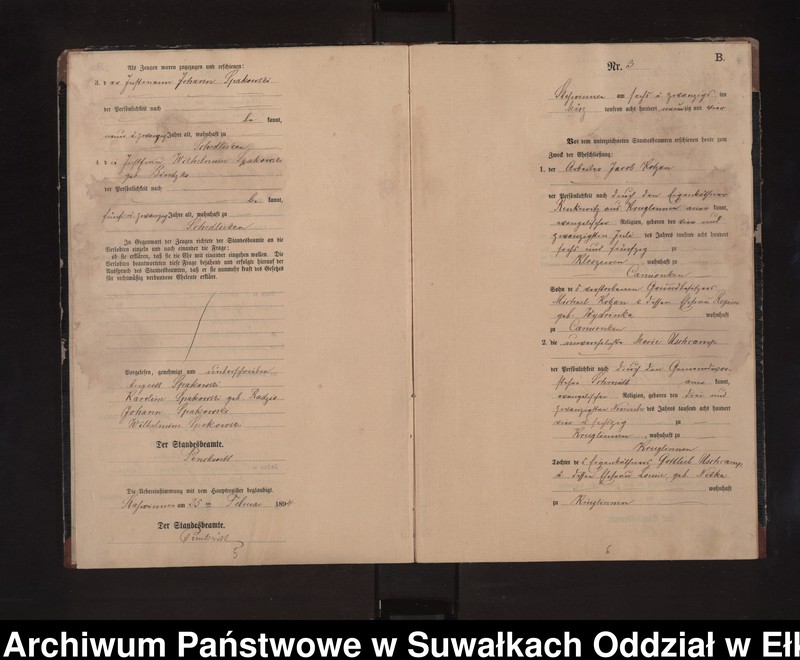 Als Zeugen waren zugezogen und erschienen:
3. der Instmann Johann Spakowski
der Persönlichkeit nach
be kannt,
Jahre alt, wohnhaft zu
Schedlisken
4. die Wilhelmine Spakowski
geb.
der Persönlichkeit nach
be kannt,
fünf u. zwanzig Jahre alt, wohnhaft zu
Schedlisken
In Gegenwart der Zeugen richtete der Standesbeamte an die
Verlobten einzeln und nach einander die Frage:
ob sie erklären, daß sie die Ehe mit einander eingehen wollen. Die
Verlobten beantworteten diese Frage bejahend und erfolgte hierauf der
Ausspruch des Standesbeamten, daß er sie nunmehr kraft des Gesetzes
für rechtmäßig verbundene Eheleute erkläre.
Vorgelesen, genehmigt und unterschrieben
August Spakowski
Karoline Spakowski geb. Radzio
Johann Spakowski
Wilhelmine Spakowski
Der Standesbeamte.
Die Uebereinstimmung mit dem Hauptregister beglaubigt.
am 25 ten Februar 1894
Der Standesbeamte.
5
B.
Nr. 3
am sechs u. zwanzigs ten
März tausend acht hundert neunzig und vier
Vor dem unterzeichneten Standesbeamten erschienen heute zum
Zweck der Eheschließung:
1. der Arbeiter Jacob Kozan
der Persönlichkeit nach durch den Eigenkäthner
aus Kruglinnen aner kannt,
evangelischer Religion, geboren den vier und
zwanzigsten Juli des Jahres tausend acht hundert
sechs und fünfzig zu
wohnhaft zu
Camionken
Sohn des verstorbenen Grundbesitzers
Michael Kozan u. dessen Ehefrau Regine
geb. wohnhaft
zu Camionken
2. die unverehelichte Marie
der Persönlichkeit nach durch den Gemeindevor-
steher Schmidt aner kannt,
evangelischer Religion, geboren den drei und
zwanzigsten des Jahres tausend acht hundert
vier u. sechszig zu
Kruglinnen, wohnhaft zu
Kruglinnen
Tochter des Eigenkäthners Gottlieb
u. dessen Ehefrau Louise, geb.
wohnhaft
zu Kruglinnen
6
Archiwum Państwowe w Suwałkach Oddział w Ełk